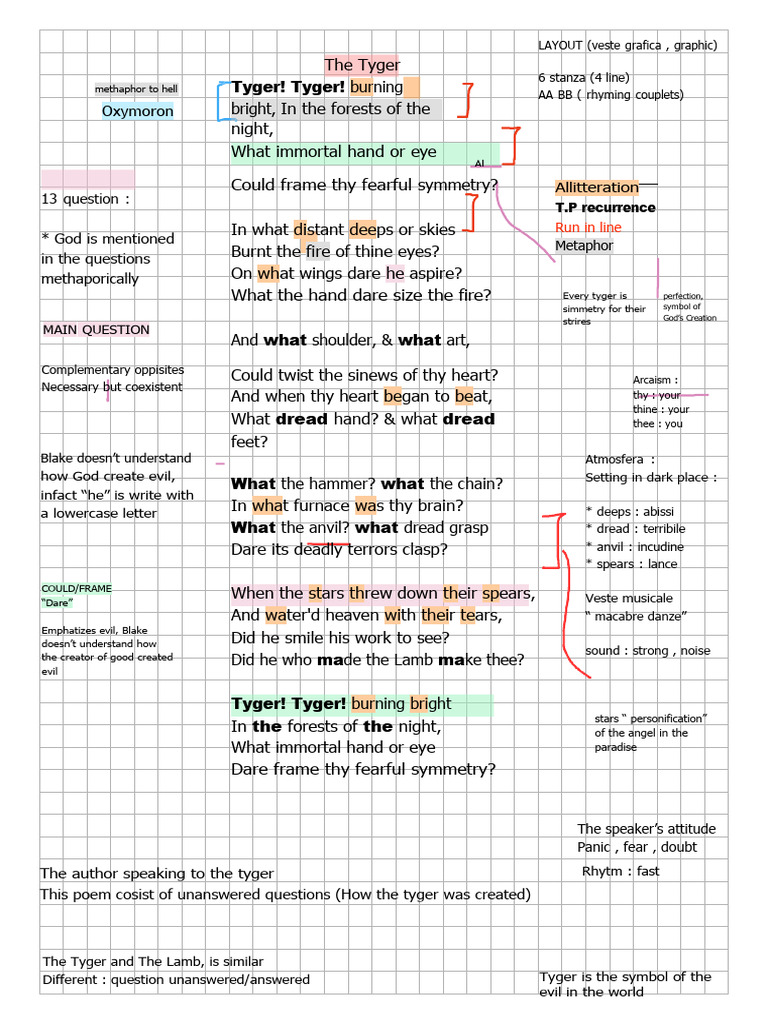 LAYOUT (veste grafica , graphic)
6 stanza (4 line)
AA BB ( rhyming couplets)
The Tyger
methaphor to hell
Oxymoron
Tyger! Tyger! burning
bright, In the forests of the
night,
What immortal hand or eye
AL
Could frame thy fearful symmetry?
In what distant deeps or skies
Burnt the fire of thine eyes?
On what wings dare he aspire?
What the hand dare size the fire?
And what shoulder, & what art,
Could twist the sinews of thy heart?
And when thy heart began to beat,
What dread hand? & what dread
feet?
What the hammer? what the chain?
In what furnace was thy brain?
What the anvil? what dread grasp
Dare its deadly terrors clasp?
When the stars threw down their spears,
And water'd heaven with their tears,
Did he smile his work to see?
Did he who made the Lamb make thee?
Tyger! Tyger! burning bright
In the forests of the night,
What immortal hand or eye
Dare frame thy fearful symmetry?
13 question :
* God is mentioned
in the questions
methaporically
MAIN QUESTION
Complementary oppisites
Necessary but coexistent
Blake doesn’t understand
how God create evil,
infact “he” is write with
a lowercase letter
COULD/FRAME
“Dare”
Emphatizes evil, Blake
doesn’t understand how
the creator of good created
evil
Allitteration
T.P recurrence
Run in line
Metaphor
Every tyger is
simmetry for their
strires
perfection,
symbol of
God’s Creation
Arcaism :
thy : your
thine : your
thee : you
Atmosfera :
Setting in dark place :
* deeps : abissi
* dread : terribile
* anvil : incudine
* spears : lance
Veste musicale
“ macabre danze”
sound : strong , noise
stars “ personification”
of the angel in the
paradise
The speaker’s attitude
Panic , fear , doubt
Rhytm : fast
The author speaking to the tyger
This poem cosist of unanswered questions (How the tyger was created)
The Tyger and The Lamb, is similar
Different : question unanswered/answered
Tyger is the symbol of the
evil in the world